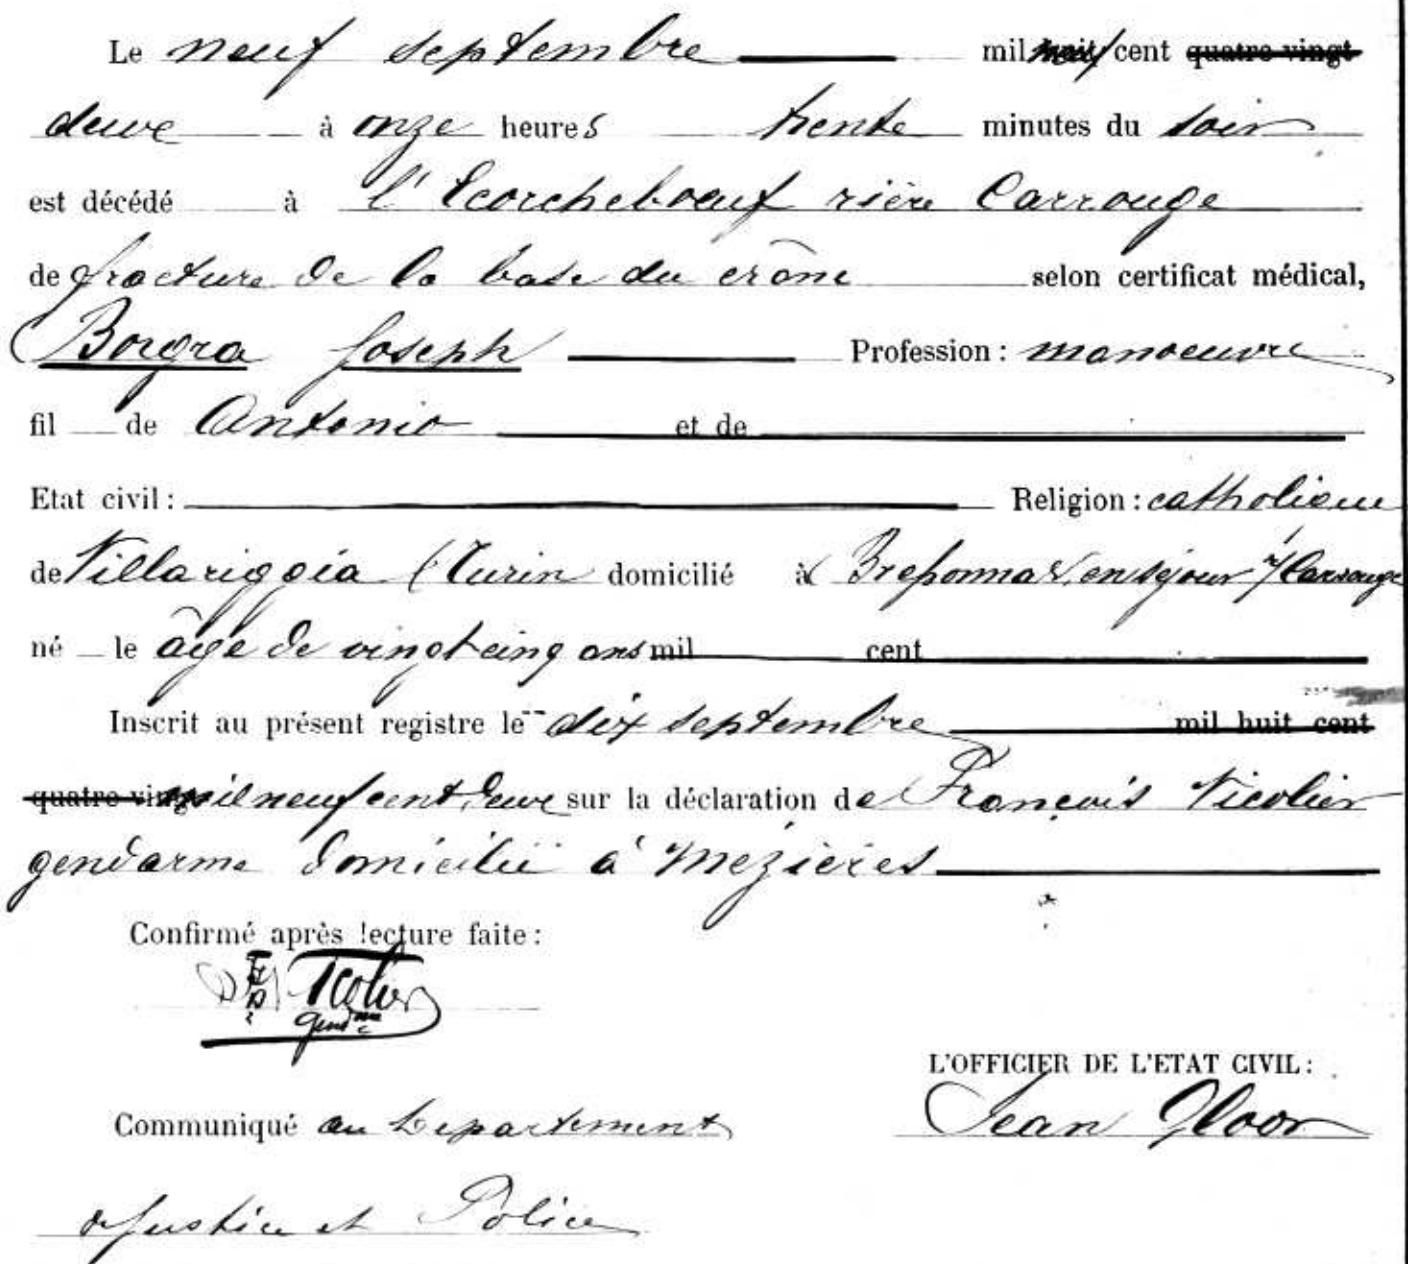 Le neuf septembre mil neuf cent quatre-vingt
deux à onze heures trente minutes du soir
est décédé à l'Ecorcheboeuf rière Carrouge
de fracture de la base du crâne selon certificat médical,
Borgra Joseph Profession : manoeuvre
fil de Antonio et de
Etat civil : Religion : catholique
de Villariggia (Turin domicilié à en séjour r/ Carrouge
né le âge de vingt cinq ans mil cent
Inscrit au présent registre le dix septembre mil huit cent
quatre-vingt mil neuf cent deux sur la déclaration de François Nicolier
gendarme domicilié à Mézières
Confirmé après lecture faite :
Nicolier
gend
L'OFFICIER DE L'ETAT CIVIL :
Communiqué au Département Jean Gloor
de Justice et Police